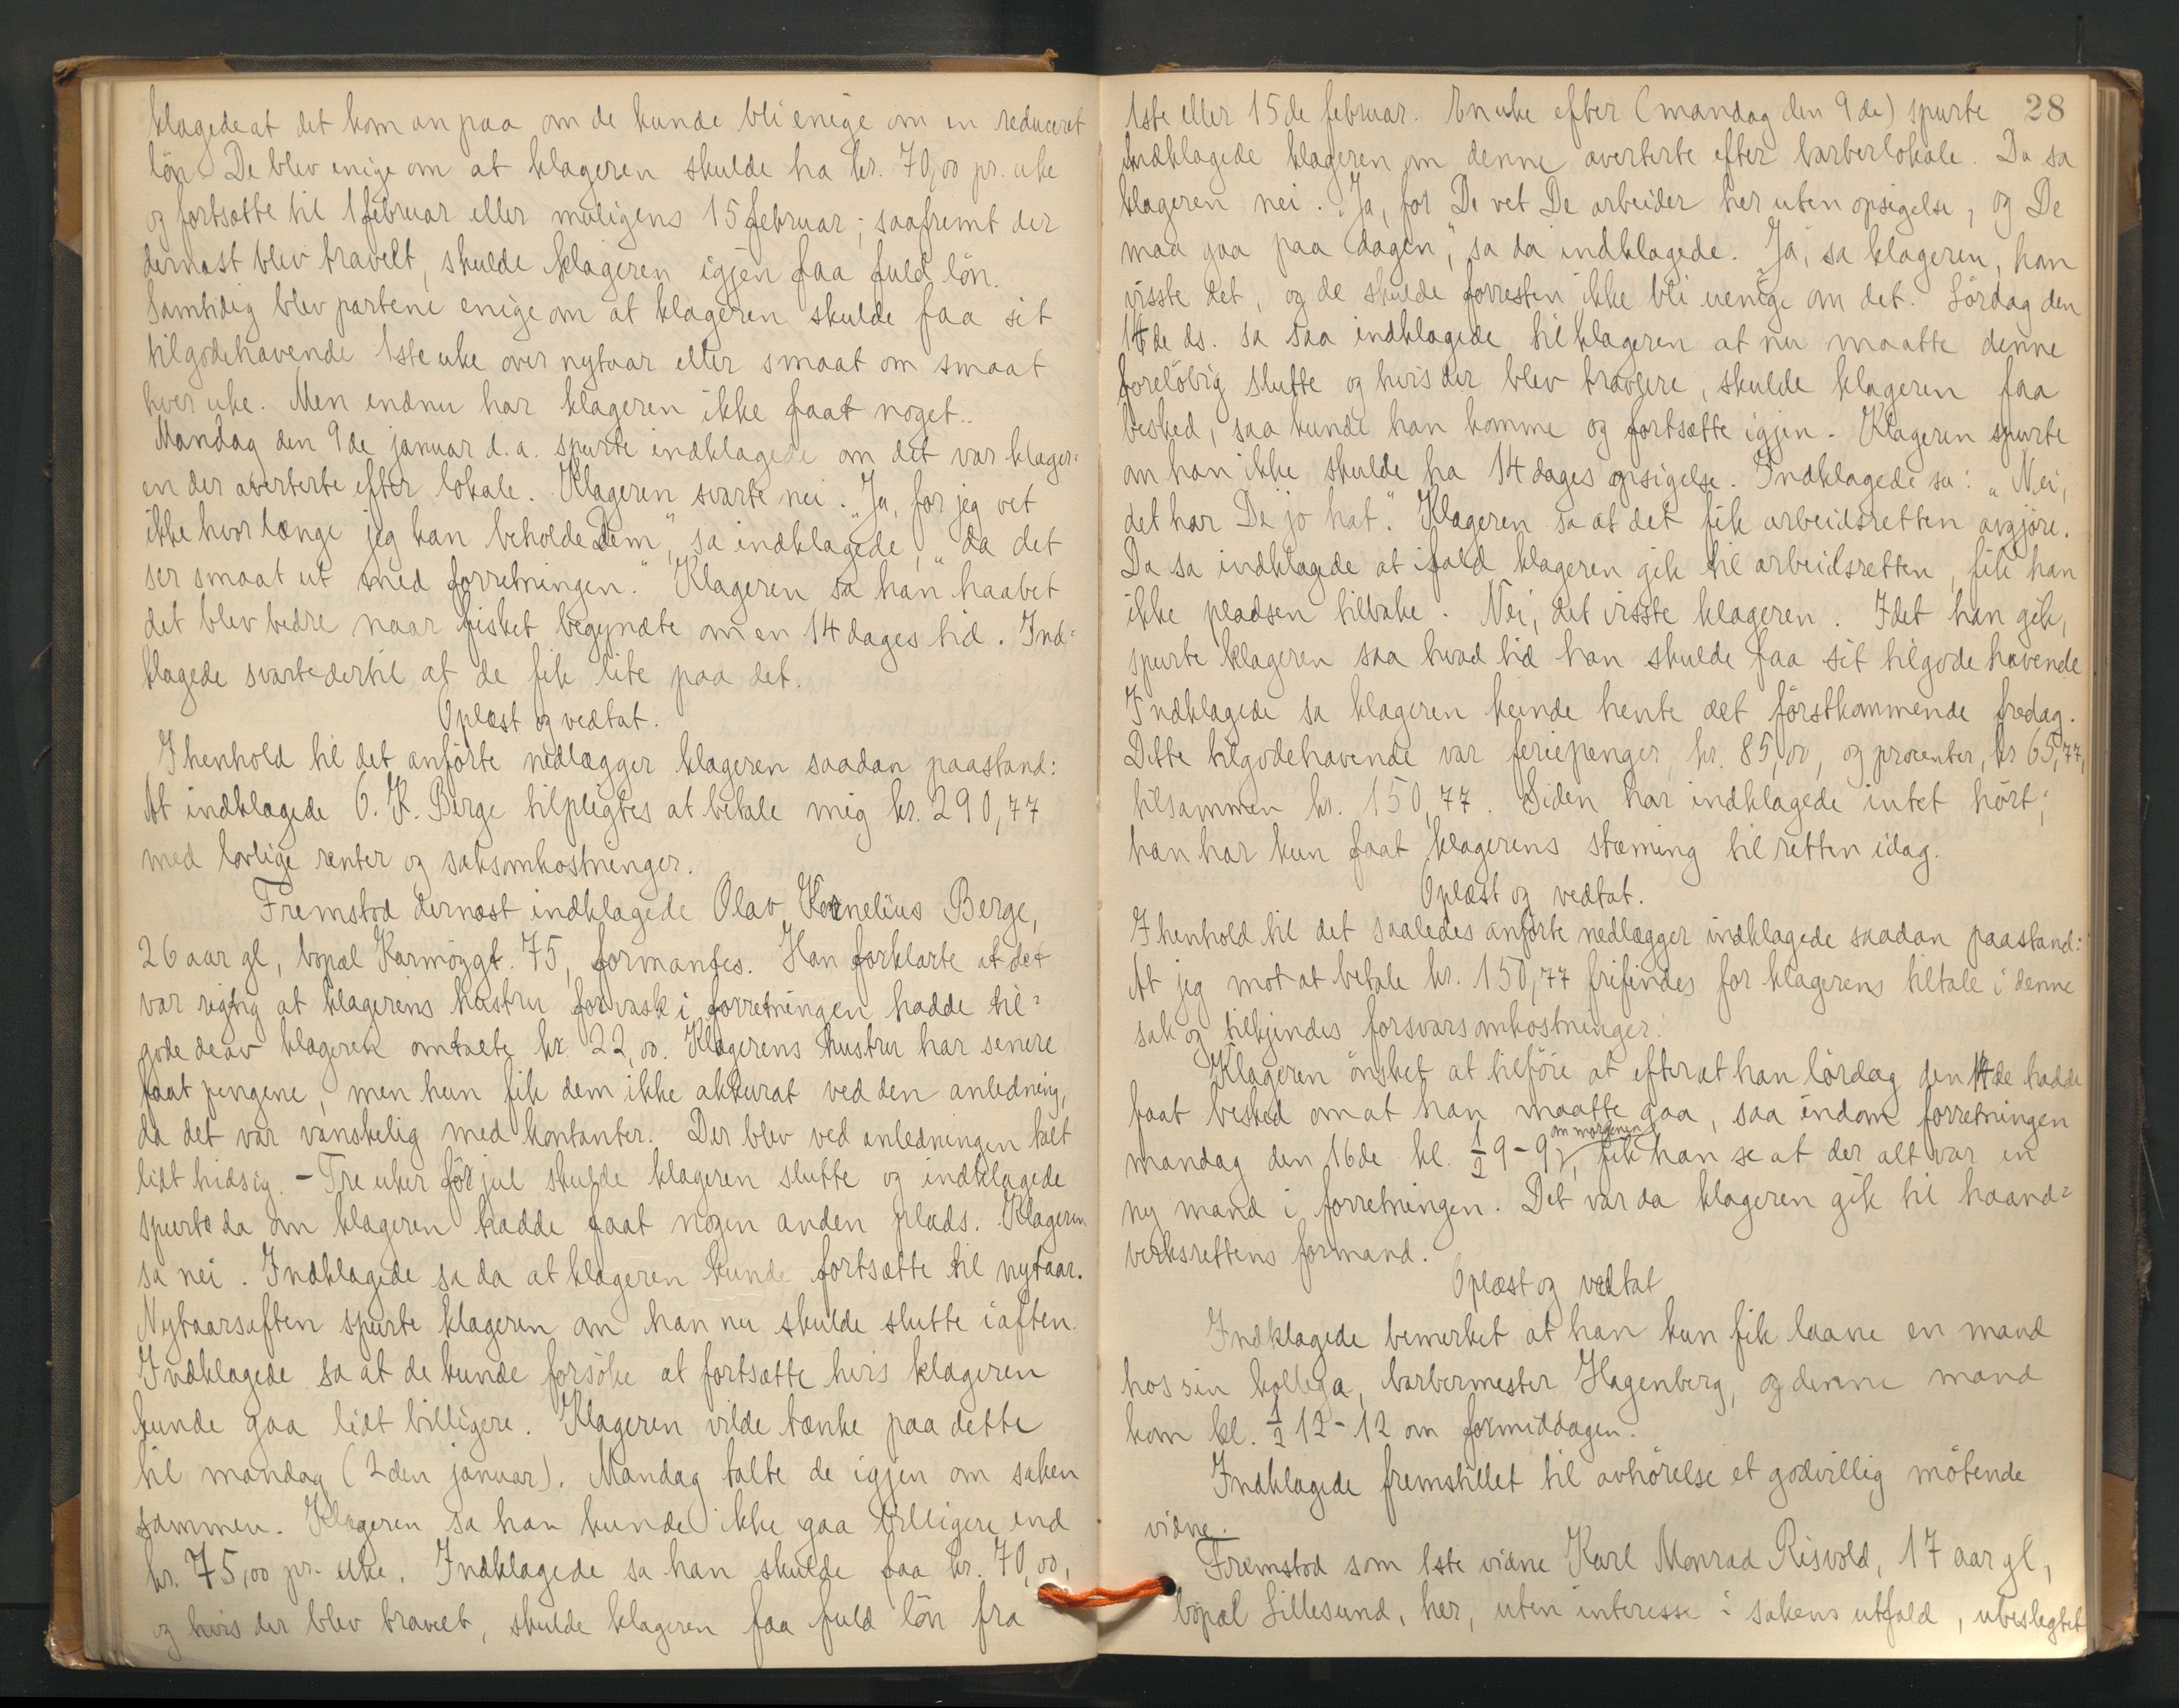 klagede at det kom an paa om de kunde bli enige om en reduceret
lön. De blev enige om at klageren skulde ha kr. 70,00 pr. uke
og fortsætte til 1 februar eller muligens 15 februar; saafremt der
dernæst blev travelt, skulde klageren igjen faa fuld lön.
Samtidig blev partene enige om at klageren skulde faa sit
tilgodehavende 1ste uke over nytaar eller smaat om smaat
hver uke. Men endnu har klageren ikke faat noget..
Mandag den 9de januar d.a. spurte indklagede om det var klager=
en der averterte efter lokale. Klageren svarte nei. "Ja, for jeg vet
ikke hvor længe jeg kan beholde Dem," sa indklagede, "da det
ser smaat ut med forretningen." Klageren sa han haabet
det blev bedre naar fisket begyndte om en 14 dages tid. Ind=
klagede svarte dertil at de fik lite paa det.
Oplæst og vedtat.
I henhold til det anförte nedlægger klageren saadan paastand:
At indklagede O. K. Berge tilpligtes at betale mig kr. 290,77
med lovlige renter og saksomkostninger.
Fremstod dernæst indklagede Olav Kornelius Berge,
26 aar gl, bopæl Karmöygt. 75, formantes. Han forklarte at det
var rigtig at klagerens hustru for vask i forretningen hadde til=
gode de av klageren omtalte kr. 22,00. Klagerens hustru har senere
faat pengene, men hun fik dem ikke akkurat ved den anledning,
da det var vanskelig med kontanter. Der blev ved anledningen talt
lidt hidsig. - Tre uker för jul skulde klageren slutte og indklagede
spurte da om klageren hadde faat nogen anden plads. Klageren
sa nei. Indklagede sa da at klageren kunde fortsætte til nytaar.
Nytaarsaften spurte klageren om han nu skulde slutte iaften.
Indklagede sa at de kunde forsöke at fortsætte hvis klageren
kunde gaa lidt billigere. Klageren vilde tænke paa dette
til mandag (2den januar). Mandag talte de igjen om saken
sammen. Klageren sa han kunde ikke gaa billigere end
kr. 75,00 pr. uke. Indklagede sa han skulde faa kr. 70,00,
og hvis der blev travelt, skulde klageren faa fuld lön fra
28
1ste eller 15de februar. En uke efter (mandag den 9de) spurte
indklagede klageren om denne averterte efter barberlokale. Da sa
klageren nei. "Ja, for De vet De arbeider her uten opsigelse, og De
maa gaa paa dagen," sa da indklagede. "Ja," sa klageren, han
visste det, og de skulde forresten ikke bli uenige om det. Lördag den
14de ds. sa saa indklagede til klageren at nu maatte denne
forelöbig slutte og hvis der blev travlere, skulde klageren faa
besked, saa kunde han komme og fortsætte igjen. Klageren spurte
om han ikke skulde ha 14 dages opsigelse. Indklagede sa: "Nei,
det har De jo hat." Klageren sa at det fik arbeidsretten avgjöre.
Da sa indklagede at ifald klageren gik til arbeidsretten, fik han
ikke pladsen tilbake. Nei, det visste klageren. Idet han gik,
spurte klageren saa hvad tid han skulde faa sit tilgodehavende
Indklagede sa klageren kunde hente det förstkommende fredag.
Dette tilgodehavende var feriepenger, kr. 85,00, og procenter, kr 65,77,
tilsammen kr. 150,77. Siden har indklagede intet hört;
han har kun faat klagerens stæmning til retten idag.
Oplæst og vedtat.
I henhold til det saaledes anförte nedlægger indklagede saadan paastand:
At jeg mot at betale kr. 150,77 frifindes for klagerens tiltale i denne
sak og tilkjendes forsvarsomkostninger.
Klageren önsket at tilföie at efterat han lördag den 14de hadde
faat besked om at han maatte gaa, saa indom forretningen
mandag den 16de kl. ½ 9-9 om morgenen, fik han se at der alt var en
ny mand i forretningen. Det var da klageren gik til haand=
verksrettens formand.
Oplæst og vedtat
Indklagede bemerket at han kun fik laane en mand
hos sin kollega, barbermester Hagenberg, og denne mand
kom kl. ½ 12-12 om formiddagen.
Indklagede fremstillet til avhörelse et godvillig mötende
vidne.
Fremstod som 1ste vidne Karl Monrad Risvold, 17 aar gl,
bopæl Lillesund, her, uten interesse i sakens utfald, ubeslegtet